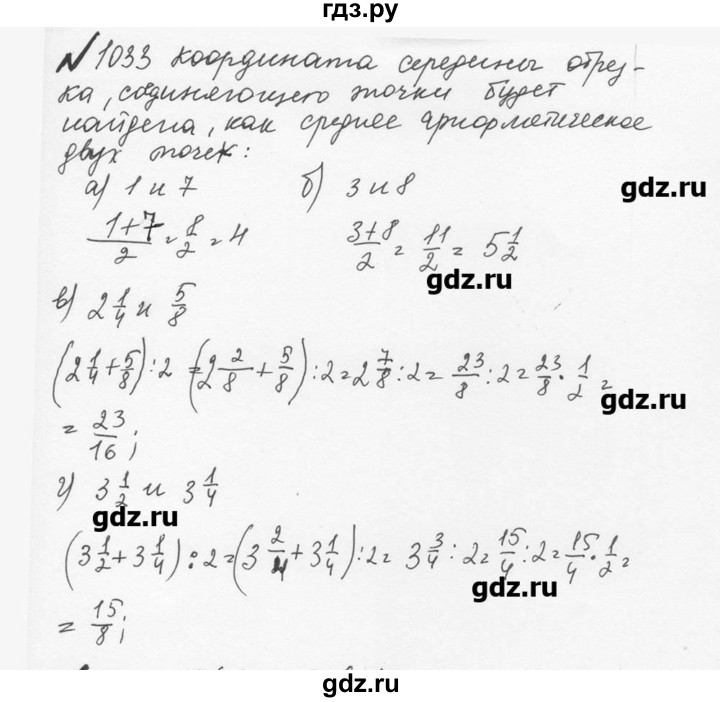 гдз.ру
№1033 координата середины отрез-
ка, соединяющего точки будет
найдена, как среднее ариорметическое
двух точек:
а) 1 и 7 б) 3 и 8
gdz.ru
(1+7)/2 = 8/2 = 4 (3+8)/2 = 11/2 = 5 1/2
gdz.ru
в) 2 1/4 и 5/8
(2 1/4 + 5/8) : 2 = (2 2/8 + 5/8) : 2 = 2 7/8 : 2 = 23/8 : 2 = 23/8 · 1/2 =
gdz.ru
= 23/16;
г) 3 1/2 и 3 1/4
gdz.ru
(3 1/2 + 3 1/4) : 2 = (3 2/4 + 3 1/4) : 2 = 3 3/4 : 2 = 15/4 : 2 = 15/4 · 1/2 =
gdz.ru
= 15/8;
gdz.ru